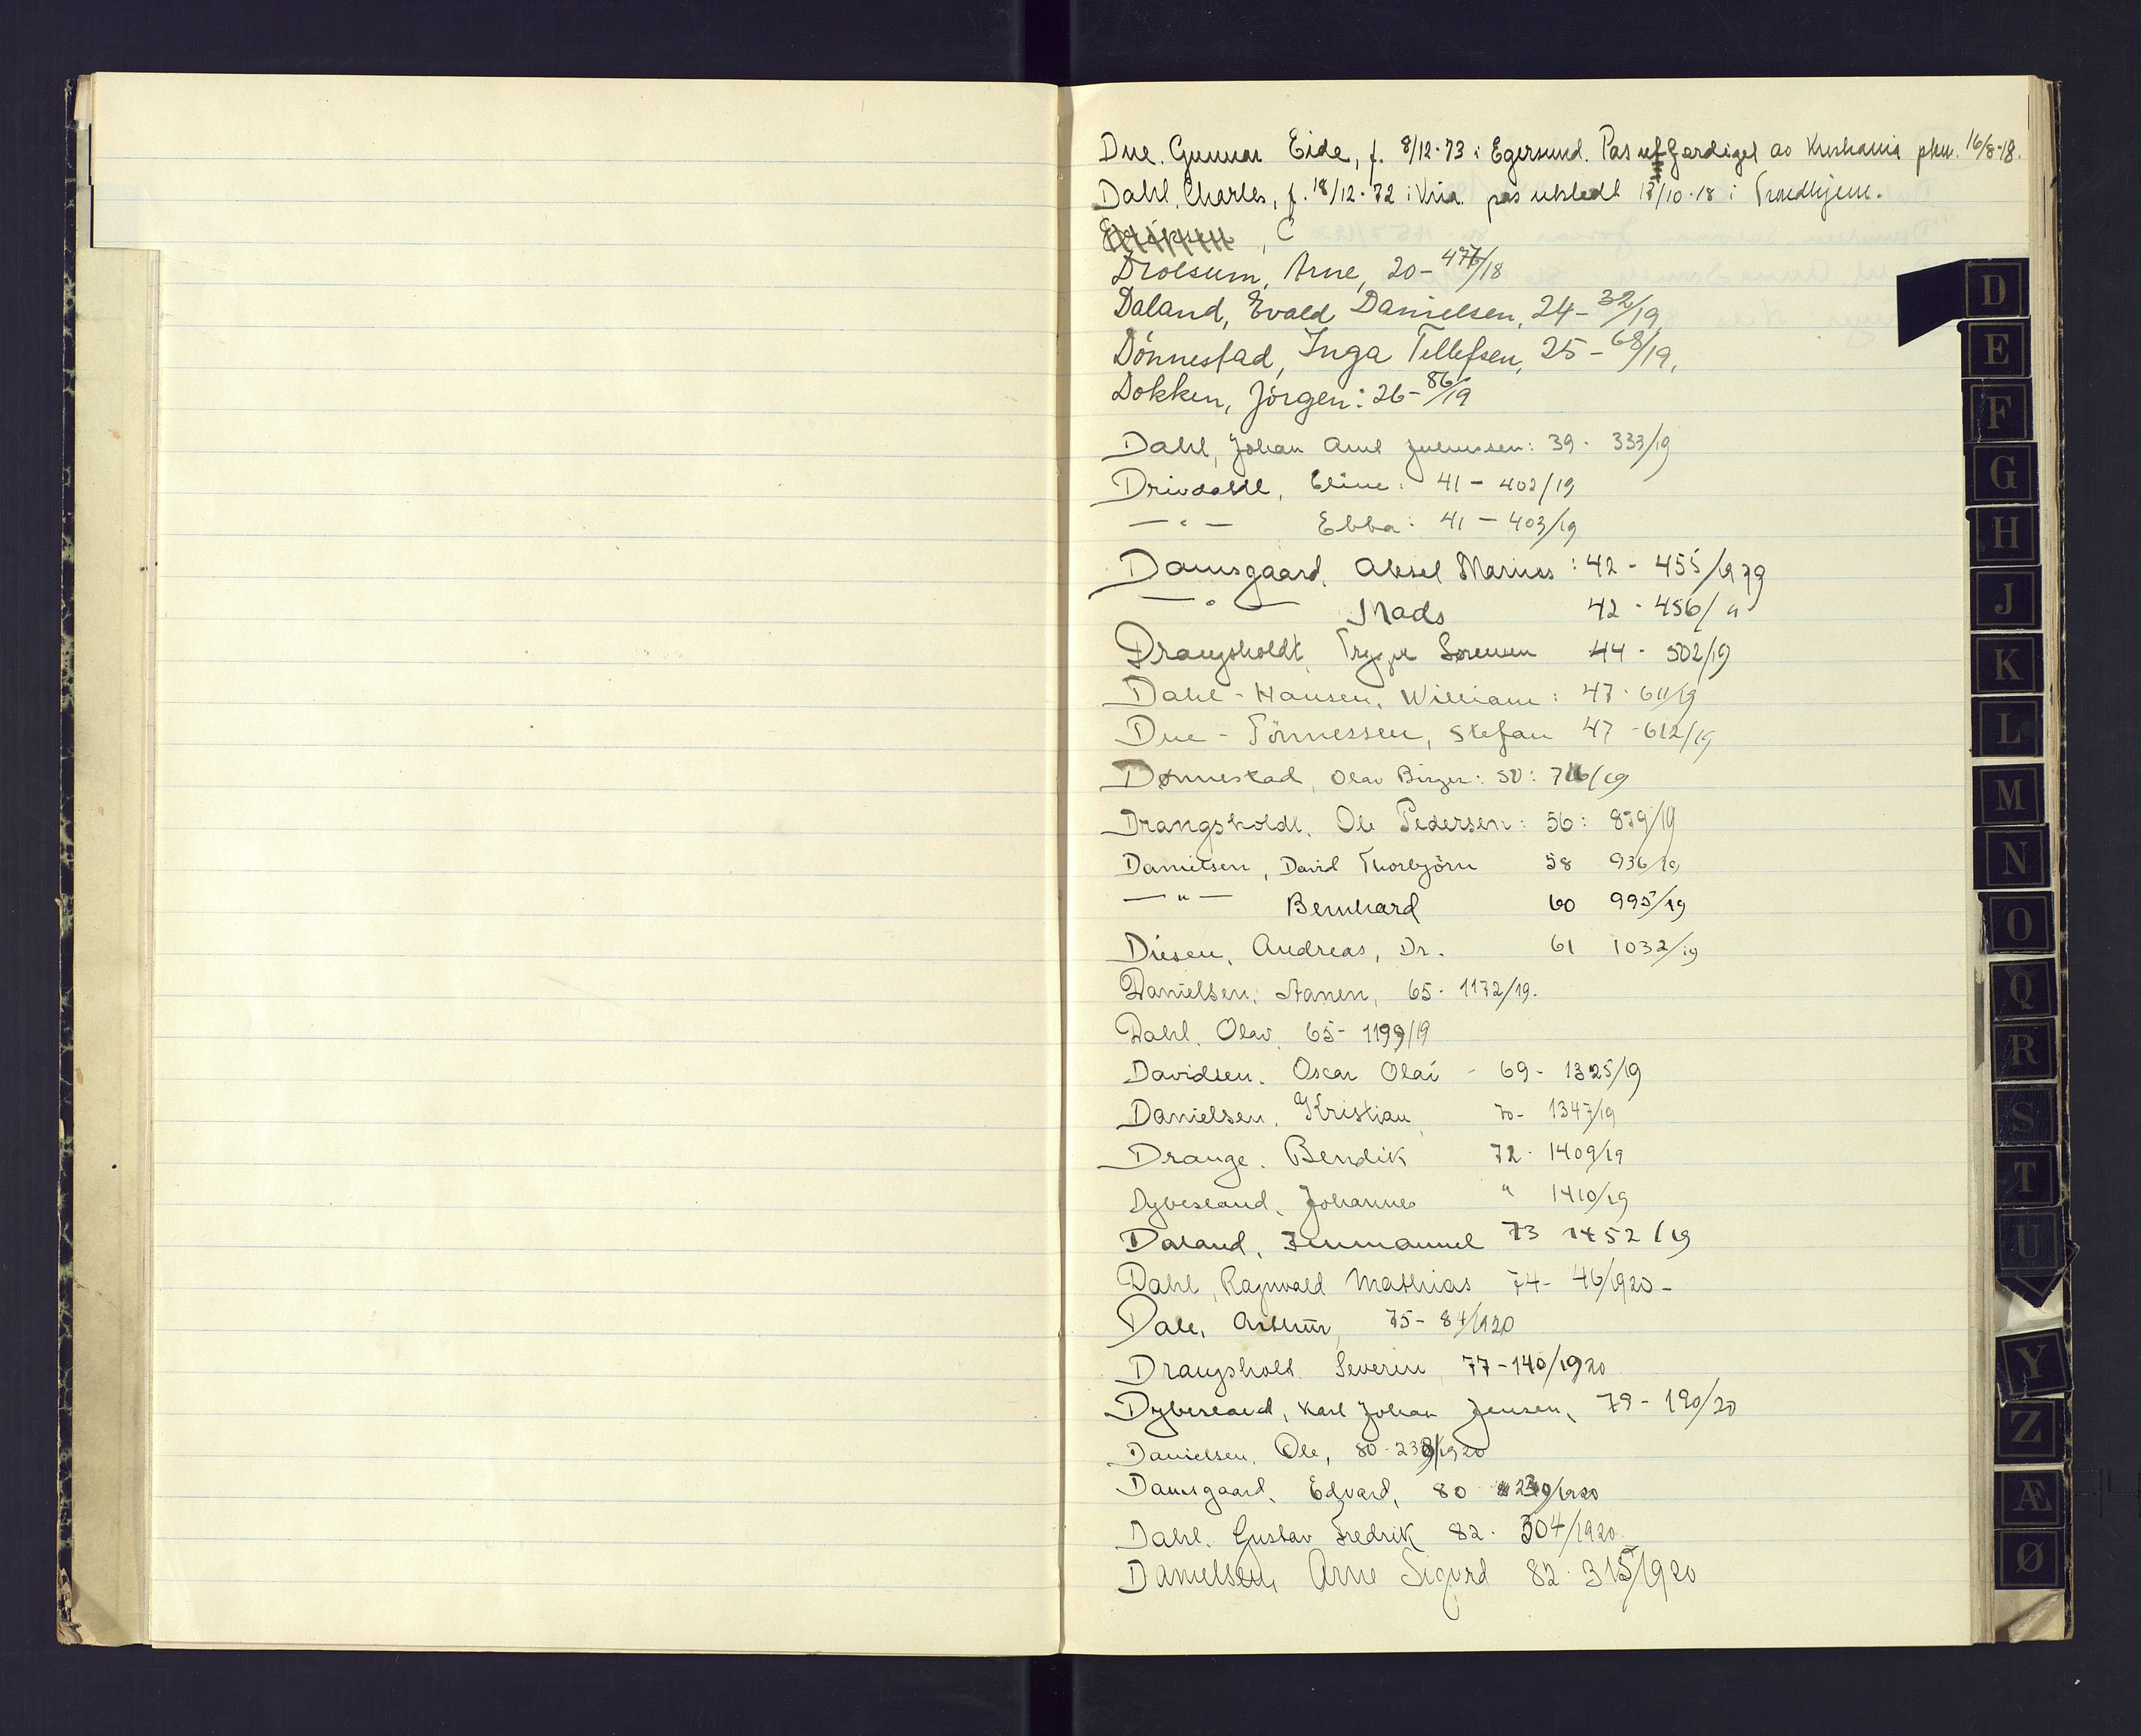 Due. Gunnar Eide, f. 8/12-73 i Egersund. Pas utfærdiget av Kristiania pkm. 16/8-18.
Dahl, Charles, f. 18/12-72 i Kria. pas utstedt 12/10-18 i Trondhjem.
, C
Drolsum, Arne, 20-476/18
Daland, Evald Danielsen, 24-32/19
Dönnestad, Inga Tellefsen, 25-68/19.
Dokken, Jörgen: 26-86/19
Dahl, Johan Juliussen: 39- 333/19
Drivdahl, Eline: 41-402/19
—"— Ebba: 41-403/19
Damsgaard, Aksel Marius: 42- 455/1979
—"— Mads 42-456/"
Drangsholdt, Trygve Sørensen 44- 502/19
Dahl-Hansen, William: 47-611/19
Due-Tönnessen, Stefan 47-612/19
Dønnestad, Olav Birger: 50: 716/19
Drangsholdt, Ole Pedersen: 56: 879/19
Danielsen, David Thorbjörn 58 936/19
—"— Bernhard 60 995/19
Diesen, Andreas, Dr. 61 1032/19
Danielsen, Aanen, 65-1172/19.
Dahl. Olav, 65-1199/19
Davidsen. Oscar Olai - 69- 1325/19
Danielsen. Kristian 70- 1347/19
Drange. Bendik 72- 1409/19
Dybesland, Johannes " 1410/19
Daland, Immanuel 73 1452/19
Dahl, Ragnvald Mathias 74- 46/1920-
Dale, Arthur, 75-84/1920
Drangsholt Severin, 77-140/1920
Dybesland, Karl Johan Jensen, 79-190/20
Danielsen, Ole, 80-238/1920
Damsgaard, Edvard, 80 239/1920
Dahl. Gustav Fredrik 82- 304/1920
Danielsen, Arne Sigurd 82-315/1920
D
E
F
G
H
J
K
L
M
N
O
Q
R
S
T
U
Y
Z
Æ
Ø